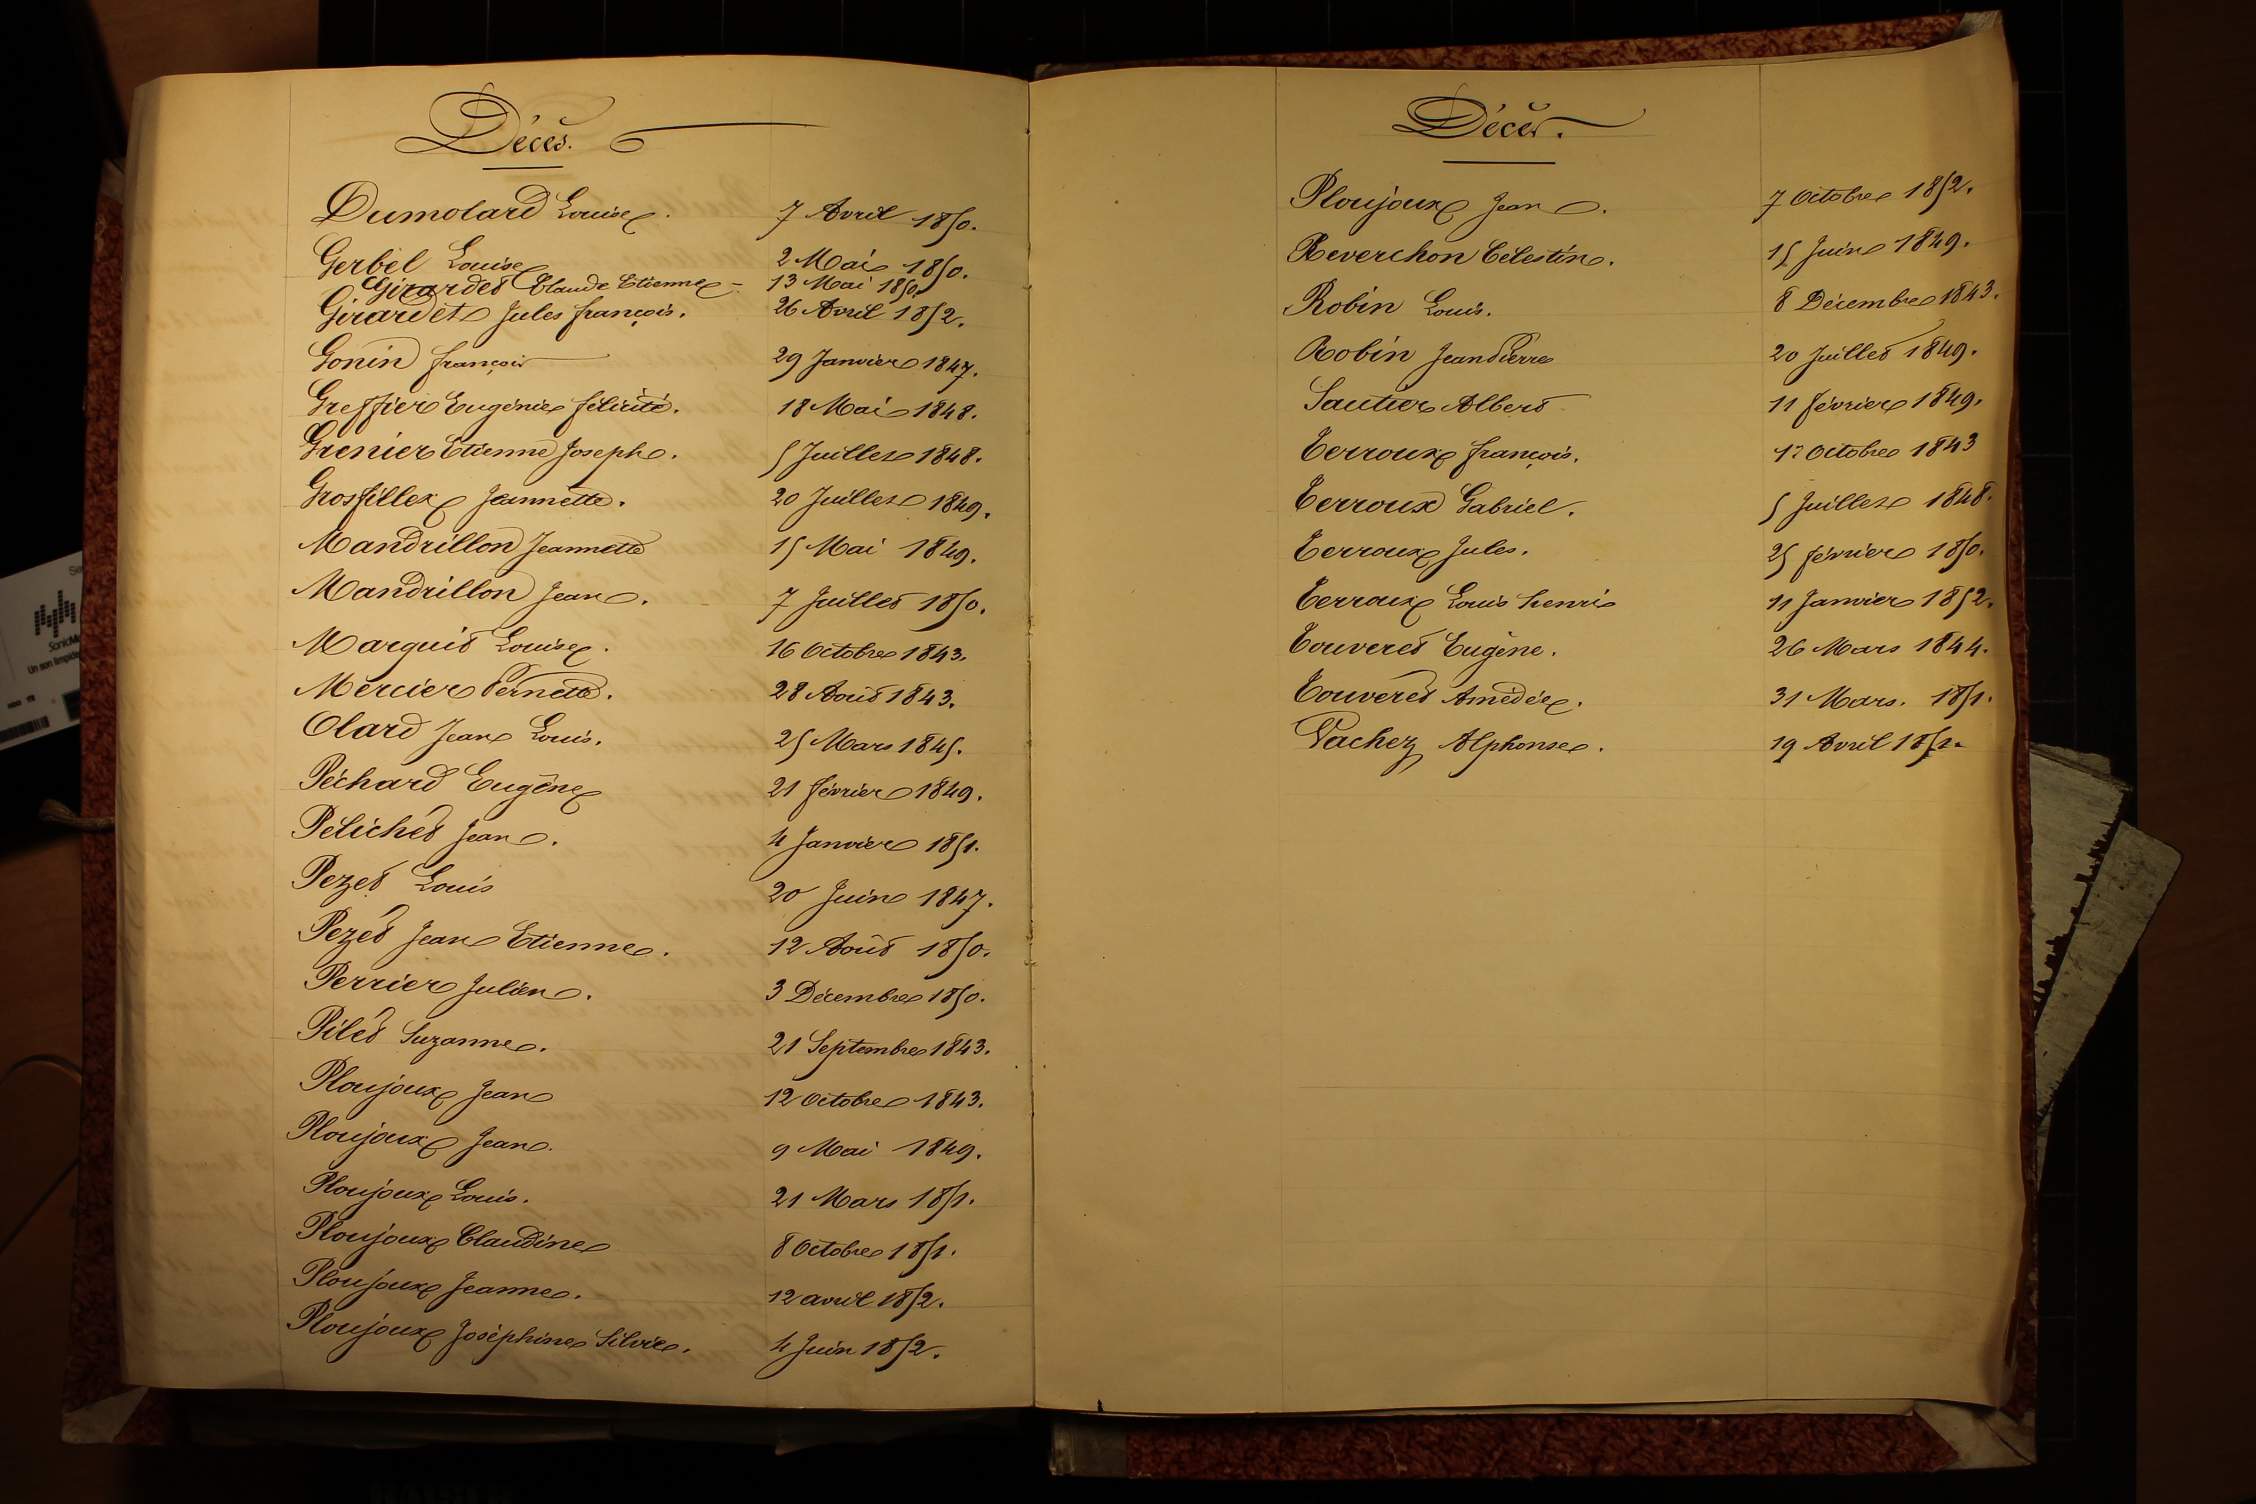 Décès.
Dumolard Louise. 7 Avril 1850.
Gerbel Louise 2 Mai 1850.
Girardet Claude Etienne - 13 Mai 1850.
Girardet Jules françois. 26 Avril 1852.
Gonin françois 29 Janvier 1847.
Greffier Eugénie félicité. 18 Mai 1848.
Grenier Etienne Joseph. 5 Juillet 1848.
Grosfillex Jeannette. 20 Juillet 1849.
Mandrillon Jeannette 15 Mai 1849.
Mandrillon Jean. 7 Juillet 1850.
Marquis Louise. 16 Octobre 1843.
Mercier Pernette. 28 Août 1843.
Olard Jean Louis. 25 Mars 1845.
Péchard Eugène 21 février 1849.
Pélichet Jean. 4 Janvier 1851.
Pezet Louis 20 Juin 1847.
Pezet Jean Etienne. 12 Août 1850.
Perrier Julien. 3 Décembre 1850.
Pilet Suzanne. 21 Septembre 1843.
Ploujoux Jean 12 Octobre 1843.
Ploujoux Jean. 9 Mai 1849.
Ploujoux Louis. 21 Mars 1851.
Ploujoux Claudine 8 Octobre 1851.
Ploujoux Jeanne. 12 avril 1852.
Ploujoux Joséphine Silvie. 4 Juin 1852.
Décès.
Ploujoux Jean. 7 Octobre 1852.
Reverchon Célestin. 15 Juin 1849.
Robin Louis. 8 Décembre 1843.
Robin Jean Pierre 20 Juillet 1849.
Sautier Albert 11 février 1849.
Terroux françois. 12 Octobre 1843
Terroux Gabriel. 5 Juillet 1848.
Terroux Jules. 25 février 1850.
Terroux Louis henri 11 Janvier 1852.
Touveret Eugène. 26 Mars 1844.
Touveret Amédée. 31 Mars. 1851.
Vachez Alphonse. 19 Avril 1851.